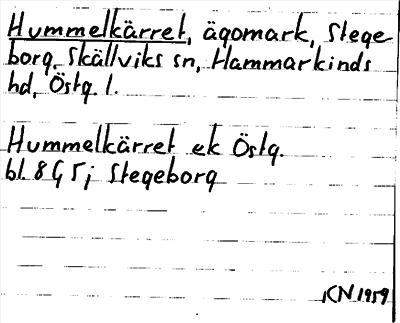 Hummelkärret, ägomark, Stege
borg, Skällviks sn, Hammarkinds
hd, Östg. l.
Hummelkärret ek Östg.
bl. 8 G 5 j Stegeborg
KN 1959